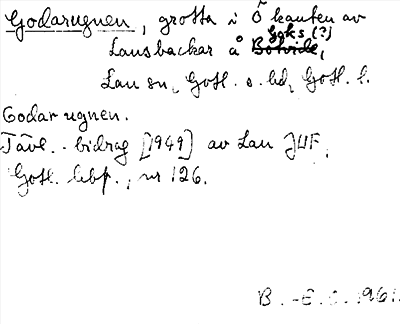 Godarugnen, grotta i Ö kanten av
Goks (?)
Lausbackar å Botvide,
Lau sn, Gotl. s. hd, Gotl. l.
Godarugnen.
Tävl.-bidrag [1949] av Lau JUF,
Gotl. hbf., nr 126.
B. -E. O. 1961.